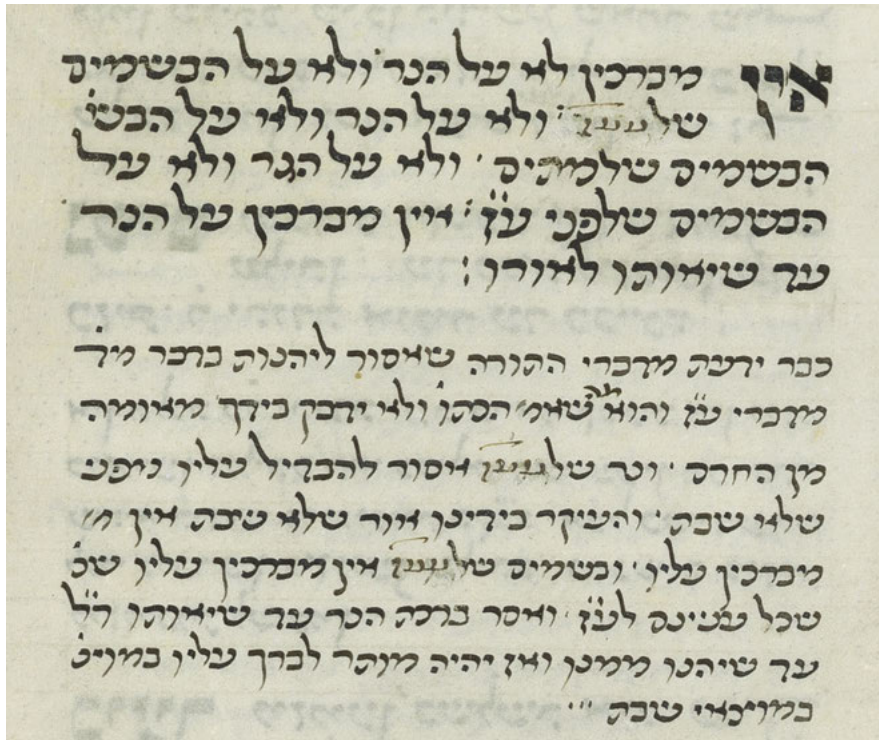 אין מברכין לא על הנר ולא על הבשמים
של ולא על הנר ולא על הבש׳
הבשמים שלמתים ׳ ולא על הנר ולא על
הבשמים שלפני ע״ז : אין מברכין על הנר
עד שיאותו לאורו :
כבר ידעת מדברי התורה שאסור ליהנות בדבר מד׳
מדברי ע״ז והוא מה שאמ׳ הכתו׳ ולא ידבק בידך מאומה
מן החרם ׳ ונר של אסור להבדיל עליו מפני
שלא שבת ׳ והעיקר בידינו אור שלא שבת אין מ׳
מברכין עליו ׳ ובשמים של אין מברכין עליו שכ׳
שכל לע״ז ׳ ואסר ברכת הנר עד שיאותו ר״ל
עד שיהנו ממנו ואז יהיה מותר לברך עליו במוצ׳
במוצאי שבת